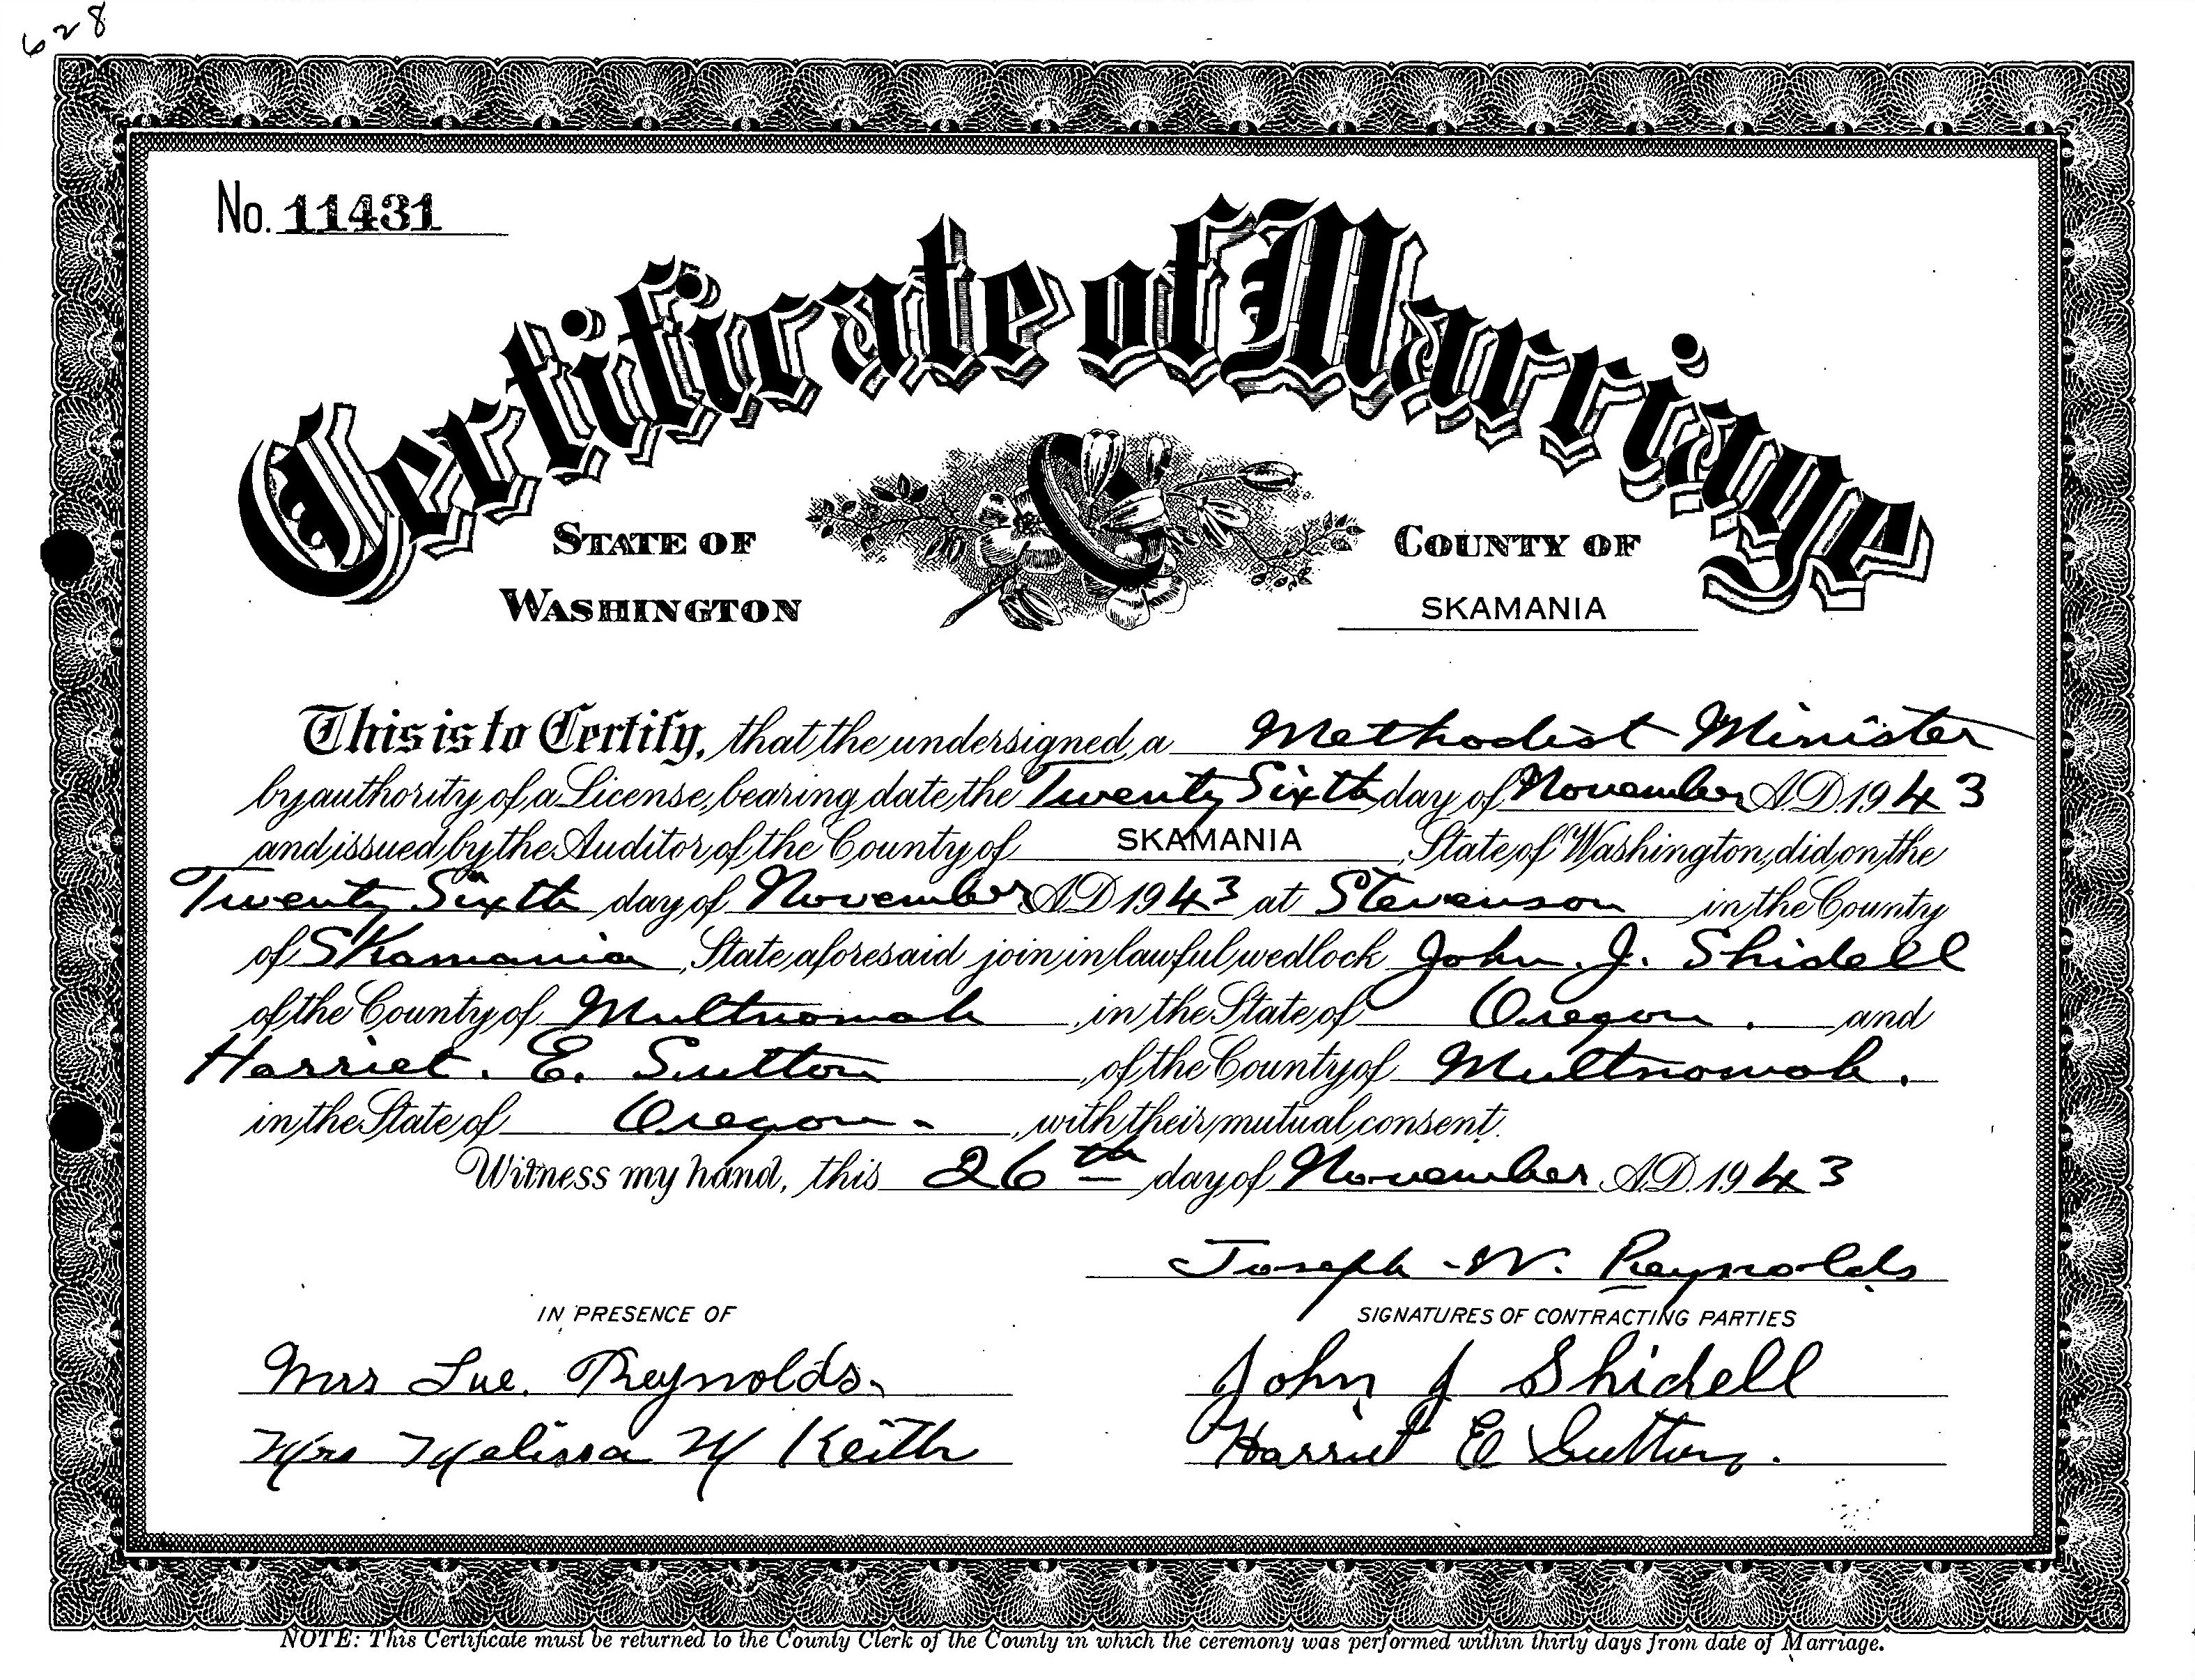 628
No. 11431
Certificate of Marriage
STATE OF WASHINGTON
COUNTY OF SKAMANIA
This is to Certify, that the undersigned, a Methodist Minister
by authority of a License, bearing date the Twenty Sixth day of November A.D. 1943
and issued by the Auditor of the County of SKAMANIA State of Washington, did, on the
Twenty Sixth day of November A.D. 1943 at Stevenson in the County
of Skamania, State aforesaid join in lawful wedlock John. J. Shidell
of the County of Multnomah, in the State of Oregon. and
Harriet. E. Sutton, of the County of Multnomah.
in the State of Oregon, with their mutual consent.
Witness my hand, this 26th day of November A.D. 1943
Joseph W. Reynolds
IN PRESENCE OF
SIGNATURES OF CONTRACTING PARTIES
Mrs Sue. Reynolds.
John J Shidell
Mrs Melissa M Keith
Harriet E Sutton.
NOTE: This Certificate must be returned to the County Clerk of the County in which the ceremony was performed within thirty days from date of Marriage.